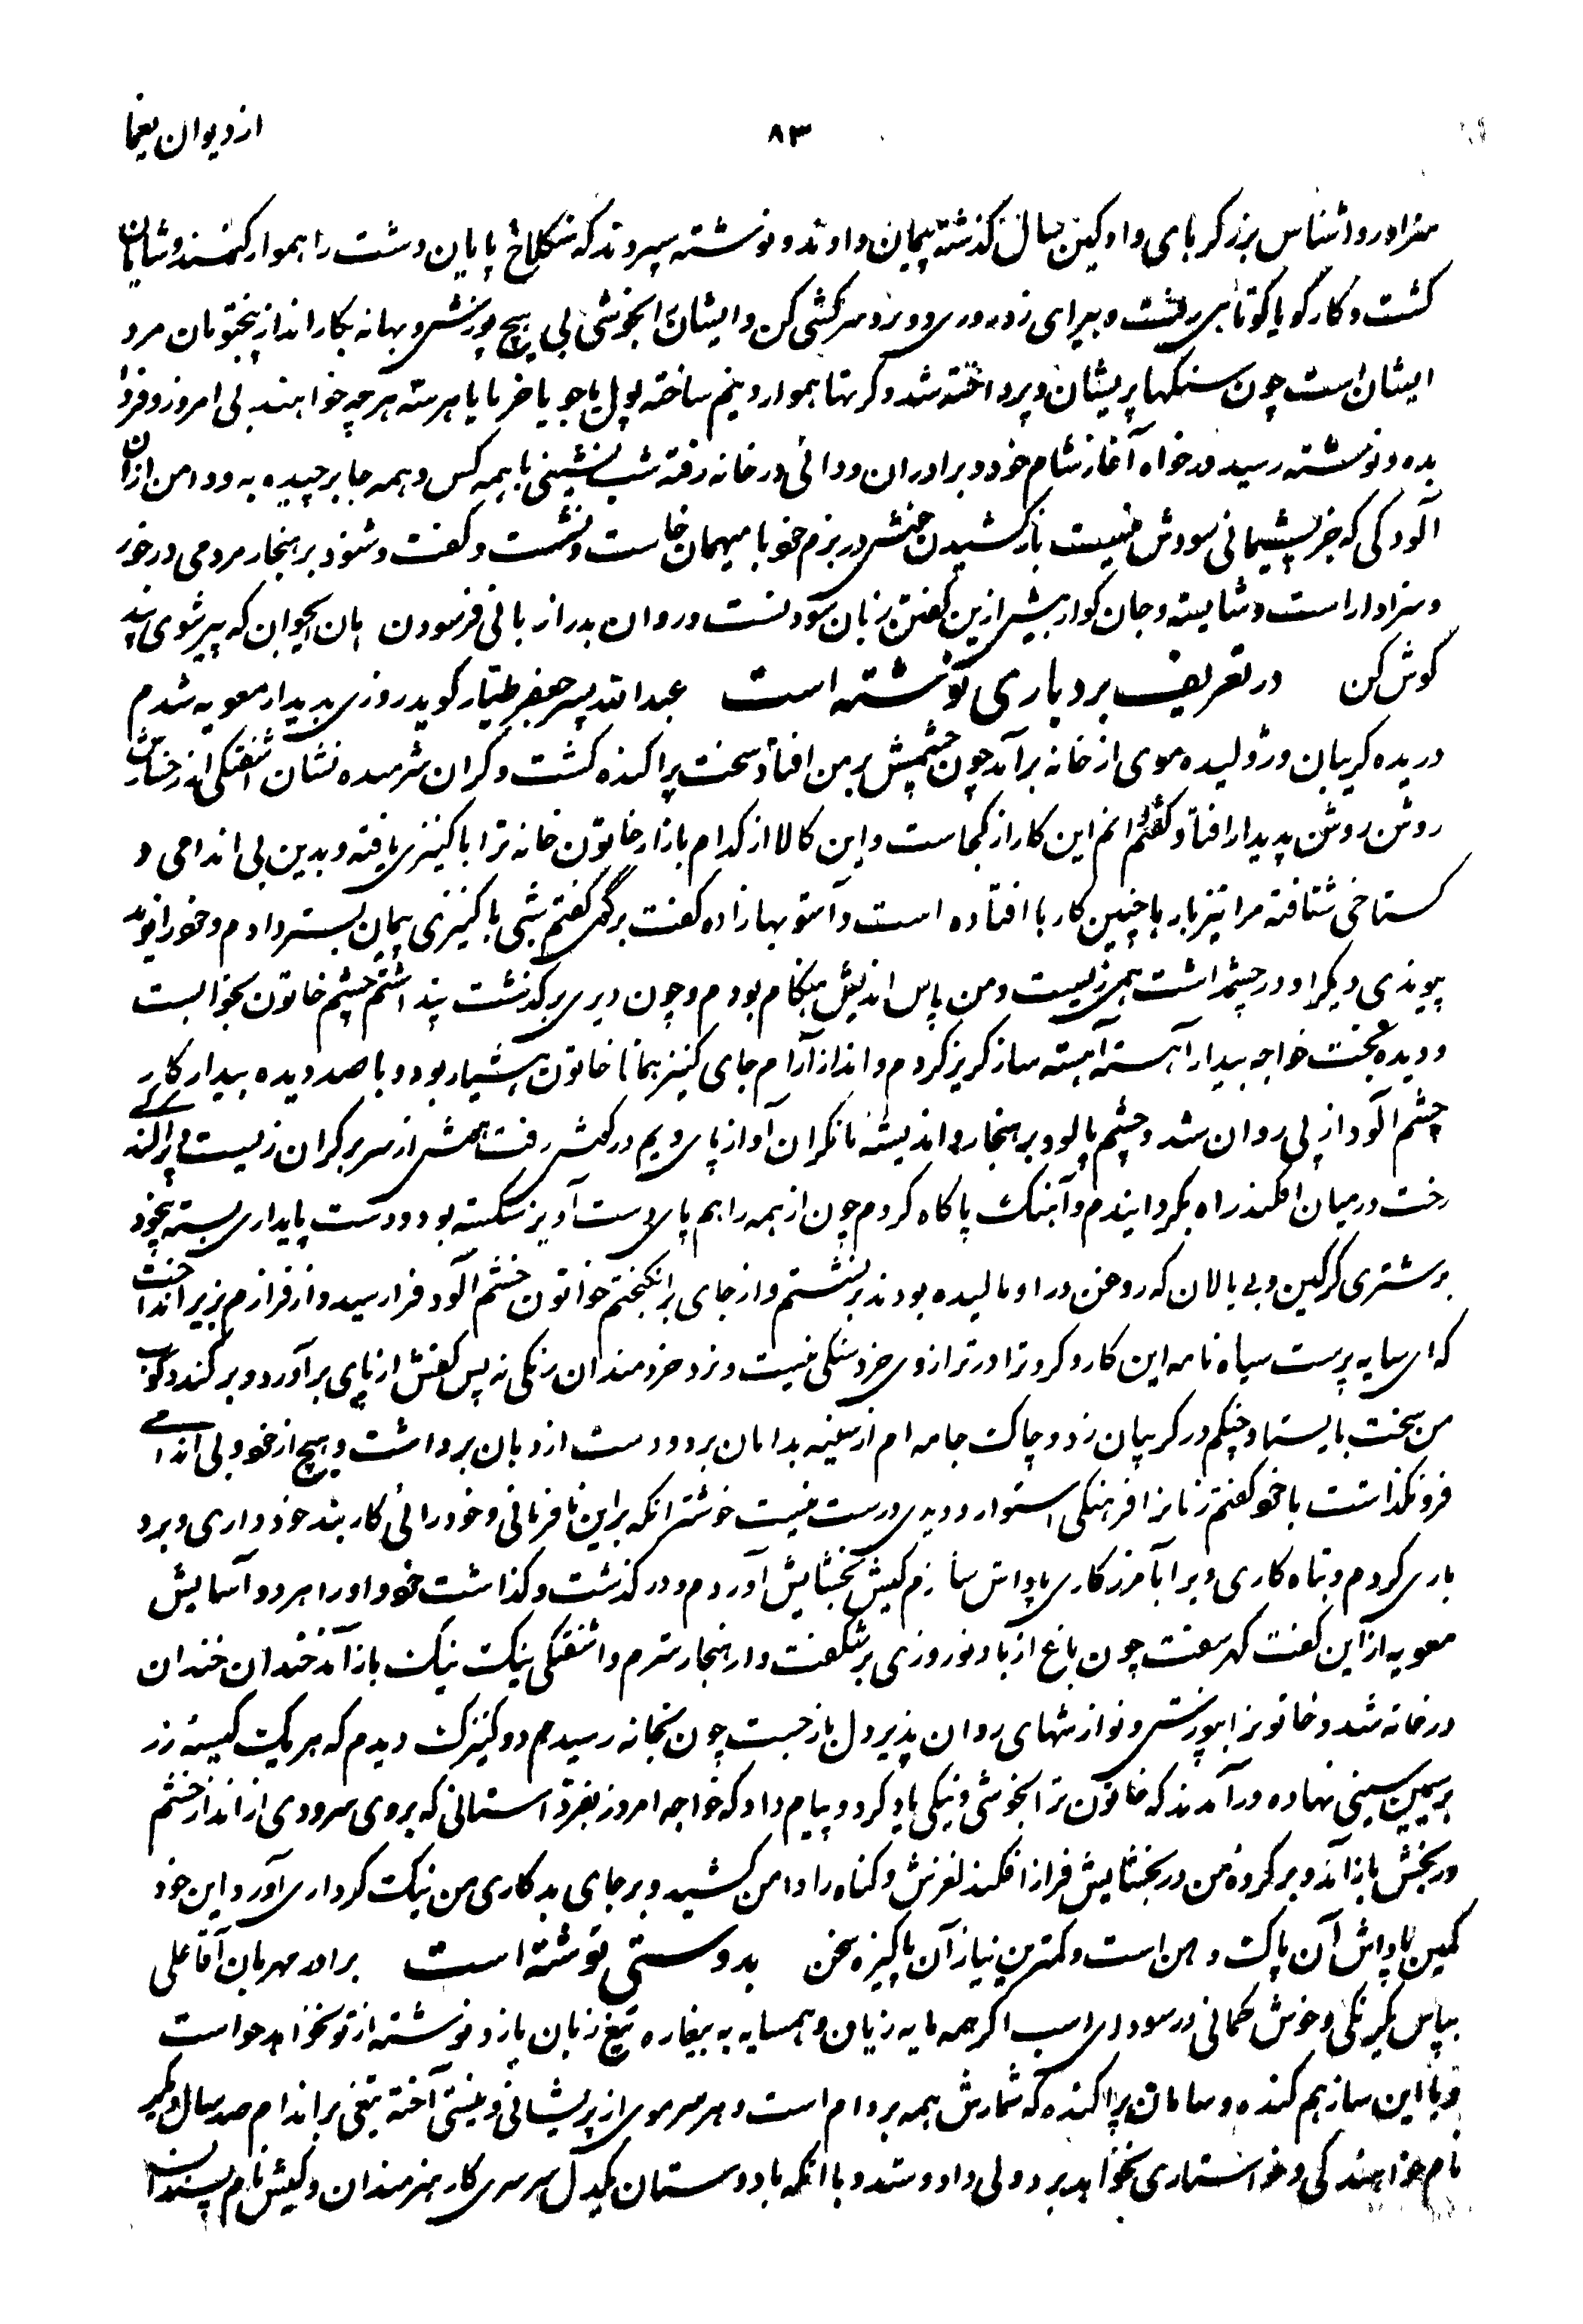 از دیوان یغما
۸۳
سزاور و اشناس برزکر بای و ادکین سال کذشته پیمان دادند و نوشته سپردند که سنکلاخ پایان دشت را هموار کنند و شایان
کشت و کار کویا کوتاهی رفت و بیرای زده وری و در سرکشی کن و ایشان بخوشی بی هیچ پوزش و بهانه بکار انداز پنجتومان مرد
ایشان است چون سنکها پریشان و پرداخته شد و کرتها هموار دینم ساخته پول یا جو یا خرما یا هر سه هر چه خواهند بی امروز و فردا
بده و نوشته رسید درخواه آغاز شام خود و برادران ودائی در خانه رفته شب نشینی با همه کس و همه جا برچیده به و دامن ازان
آلودکی که جز پشیمانی سودش نیست باز کشیدن در بزم خود با میهمان خاست و نشست و کفت و شنود بر هنجار مردمی درخور
و سزاوار است و شایسته و جان کوار بیش ازین کفتن زبان سودنست و روان بدراز بافی فرسودن هان ایجوان که پیر شوی پند
کوش کن در تعریف بردباری نوشته است عبدالله پسر جعفر طیار کوید روزی بدیدار معویه شدم
دریده کریبان و ژولیده موی از خانه برآمد چون چشمش بر من افتاد سخت پراکنده کشت و کران شرمسده نشان آشفتکی از رخسارش
روشن روشن پدیدار افتاد کفتم دانم این کار از کجاست و این کالا از کدام بازار خاتون خانه ترا با کنیزی یافته و بدین بی اندامی و
کستاخی شتافته مرا نیز بارها چنین کارها افتاده است و آشوبها زاده کفت برکو کفتم شبی با کنیزی پیمان بستر دادم و خودرا نوید
پیوندی دیکر او در چشمداشت همی زیست و من پاس اندیش هنکام بودم و چون دیری برکذشت پنداشتم چشم خاتون بخوابست
و دیده بخت خواجه بیدار آهسته آهسته ساز کریز کردم و انداز آرام جای کنیز همانا خاتون هشیار بود و با صد دیده بیدار کار
خشم آلود از پی روان شد و چشم پالود بر هنجار و اندیشه ما نکران آواز پای ویم در کوش رفت هوش از سر بر کران زیست پراکنده
رخت در میان افکند راه بکردانیدم و آهنک پاکاه کردم چون از همه راهم پای دست آویز شکسته بود و دست پایداری بسته بیخود
بر شتری کرکین و بی پالان که روغن در او مالیده بودند برنشستم و از جای برانکیختم خواتون خشم آلود فرا رسید و از فرازم بزیر انداخت
که ای سایه پرست سیاه نامه این کار و کرد ترا در ترازوی خرد سنکی نیست و نزد خردمندان رنکی نه پس کفش از پای برآورد و برکند و کوب
من سخت بایستاد چنکم در کریبان زد و چاک جامه ام از سینه بدامان برد و دست از دهان برداشت و هیچ از خود بی اندامی
فرونکذاشت با خود کفتم زنانرا فرهنکی استوار و دیدی درست نیست خوشتر انکه بر این نافرمانی و خودرائی کاربند خودداری و برد
باری کردم و تباه کاری ویرا بآمرزکاری پاداش سازم کیش بخشایش آوردم و در کذشت و کذاشت خود و او را مر دو آسایش
معویه از این کفت کهر سفت چون باغ از باد نوروزی بر شکفت و از هنجار شرم و اشفتکی نیک نیک باز آمد خندان خندان
در خانه شد و خاتونرا بپوزش و نوازشهای روان پذیر دل باز جست چون بخانه رسیدم دو کنیزک دیدم که هر یک کیسهٔ زر
بر سیمین سینی نهاده درآمدند که خاتون ترا بخوشی و نیکی یاد کرد و پیام داد که خواجه امروز بفر داستانی که بروی سرودی از انداز خشم
در بخش باز آمد و بر کردهٔ من در بخشایش فراز افکند لغزش و کناه را دامن کشید و بر جای بدکاری من نیک کرداری آورد این خود
کمین پاداش آن پاک دامن است و کمترین نیاز آن پاکیزه سخن بدوستی نوشته است برادر مهربان آقا علی
بپاس یکرنکی و خوش کمانی در سودای اسب اکر همه مایه زیان و همسایه به بیغاره تیغ زبان یازد نوشته از تو نخواهد خواست
و با این ساز هم کنده و سامان پراکنده که شمارش همه بر دام است و هر سر موی از پریشانی و نیستی آخته تیغی بر اندام صد سال دیکر
نام خواهندکی و خواستاری نخواهد برد ولی داد و ستد و با انکه با دوستان یکدل سرسری کار هنرمندان و کیش نام پسندان